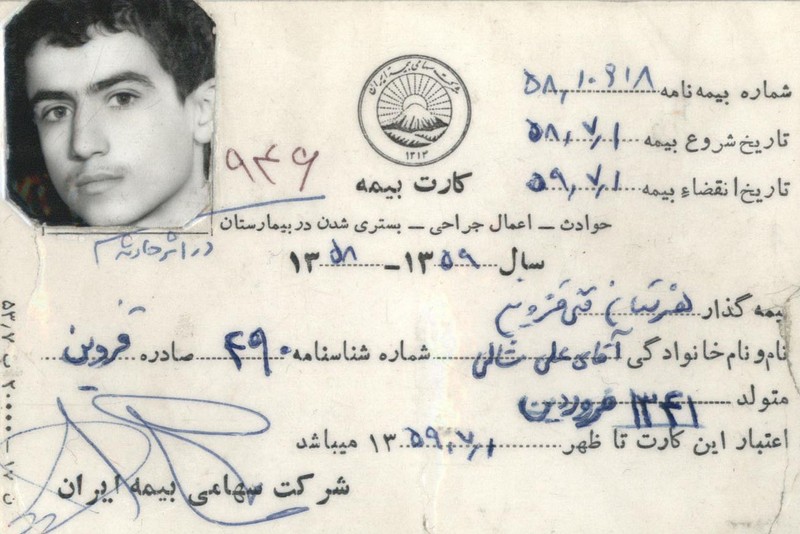 شرکت سهامی بیمه ایران
۱۳۱۴
۹۴۶
شماره بیمه‌نامه ۵۸,۱۰۹۱۸
تاریخ شروع بیمه ۵۸,۷,۱
تاریخ انقضاء بیمه ۵۹,۷,۱
کارت بیمه
حوادث ـ اعمال جراحی ـ بستری شدن در بیمارستان
در اثر حادثه
سال ۱۳۵۹ - ۱۳۵۸
بیمه گذار
نام و نام خانوادگی آقای علی شماره شناسنامه ۴۹۰ صادره قزوین
متولد ۱۳۴۱ فروردین
اعتبار این کارت تا ظهر ۱۳۵۹,۷,۱ میباشد
شرکت سهامی بیمه ایران